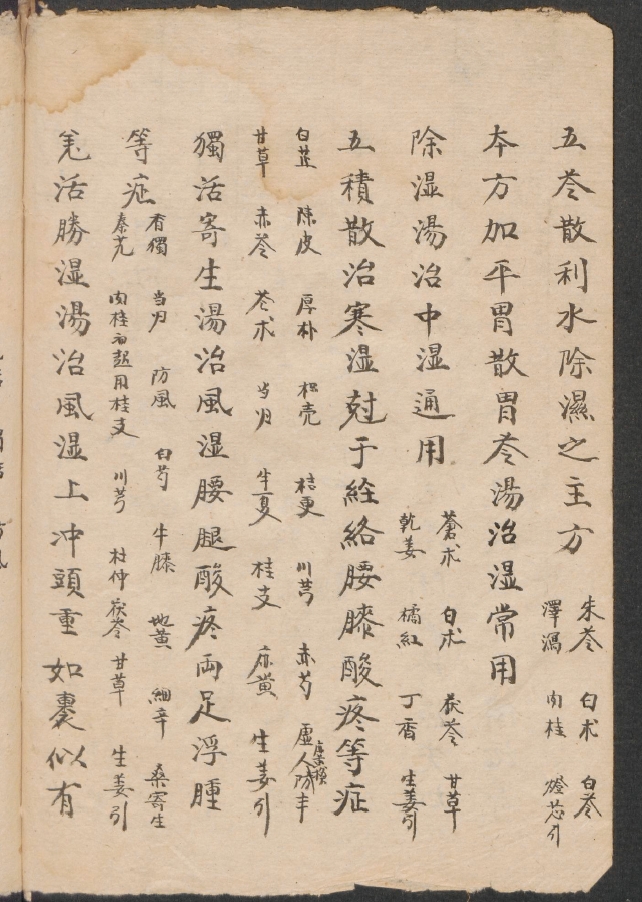 五苓散利水除濕之主方
朱苓 白朮 白苓
澤瀉 肉桂 燈芯引
本方加平胃散胃苓湯治湿常用
除湿湯治中湿通用
蒼朮 白朮 茯苓 甘草
乾姜 橘紅 丁香 生姜引
五積散治寒湿尅于絟絡腰膝酸疼等症
白芷 陳皮 厚朴 枳壳 桔更 川芎 赤芍 虛人防丰
甘草 赤苓 苍朮 当归 半夏 桂支 麻黄 生姜引
獨活寄生湯治風湿腰腿酸疼両足浮腫
等症
有獨 当归 防風 白芍 牛膝 地黄 細辛 桑寄生
秦艽 肉桂 用桂支 川芎 杜仲 茯苓 甘草 生姜引
羗活勝湿湯治風湿上冲頭重如裹似有